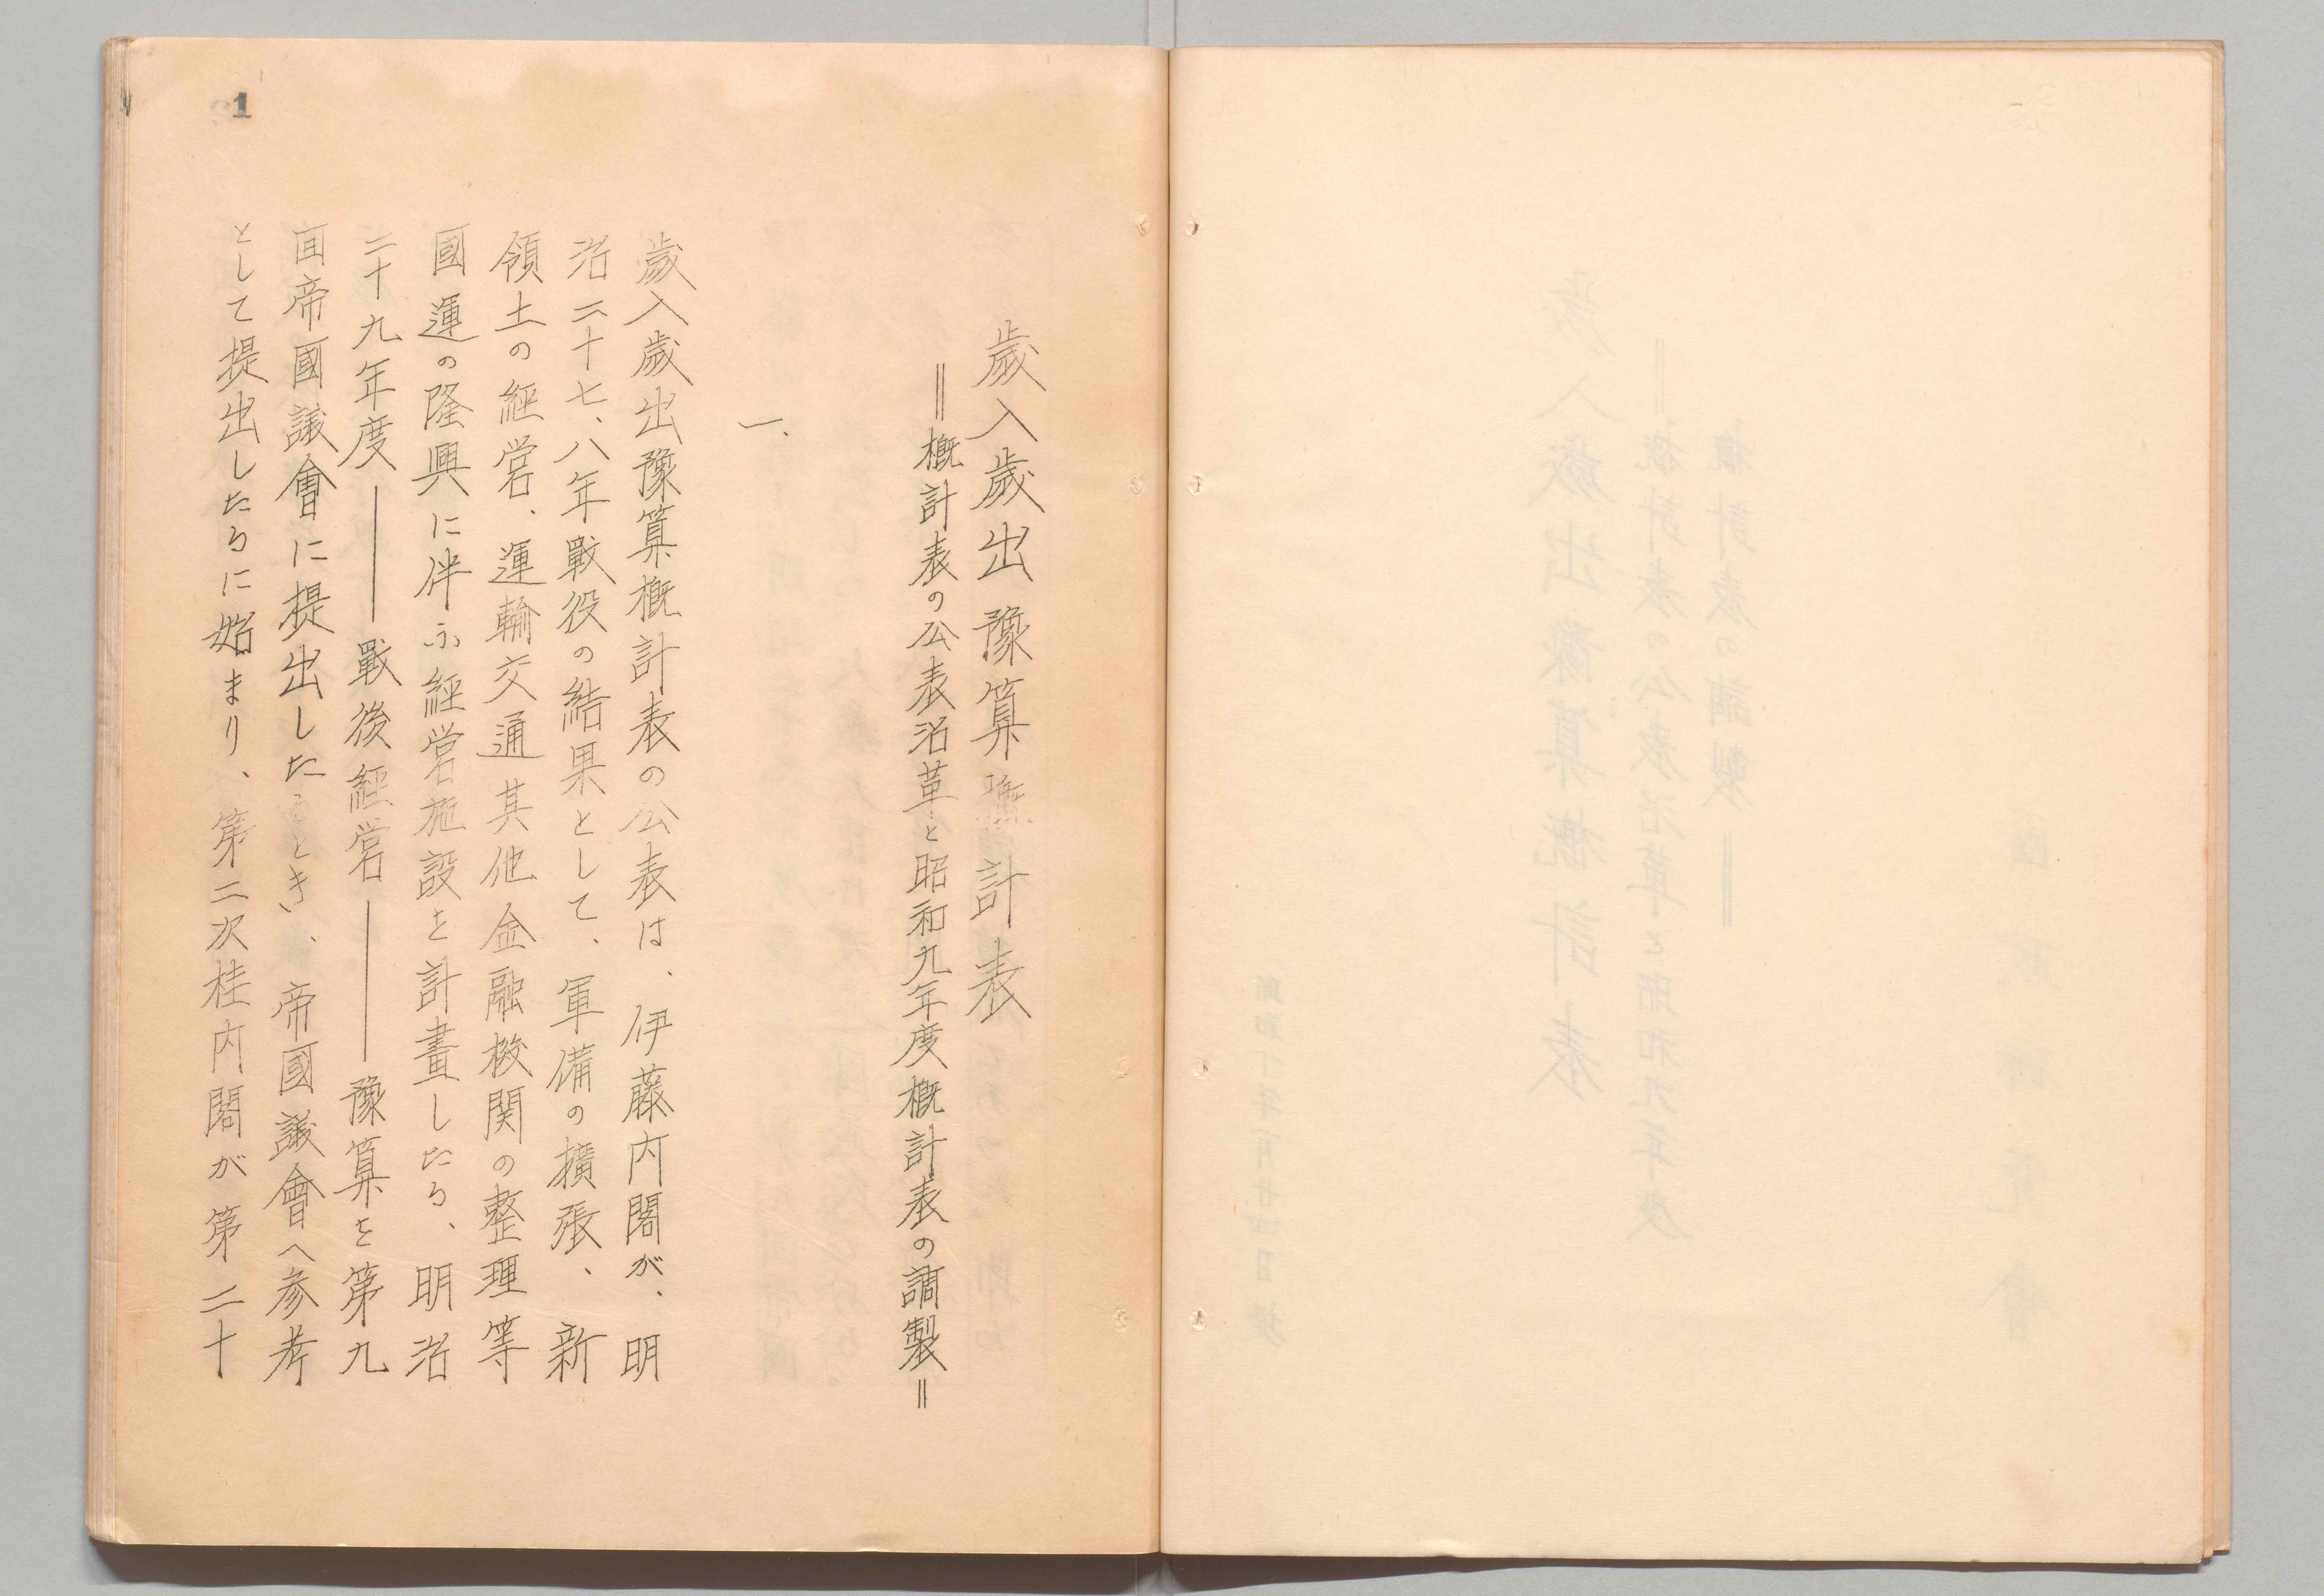 歲入歲出豫算概計表
＝概計表の公表沿革と昭和九年度概計表の調製＝
一、
歲入歲出豫算概計表の公表は、伊藤内閣が、明
治二十七、八年戰役の結果として、軍備の擴張、新
領土の經営、運輸交通其他金融機関の整理等
國運の隆興に伴ふ經営施設を計畫したる、明治
二十九年度――戰後經営――豫算を第九
回帝國議會に提出したるとき、、帝國議會へ参考
として提出したるに始まり、第二次桂内閣が第二十
1